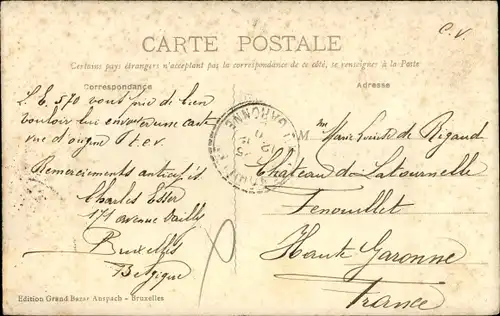 C. V.
CARTE POSTALE
Certains pays étrangers n'acceptant pas la correspondance de ce côté, se renseigner à la Poste
Correspondance
Adresse
L. E. 570 vous prie de bien
vouloir lui envoyer une carte
vue d'origine t.c.v.
Remerciements anticipés
Charles Esser
171 avenue
Bruxelles
Belgique
M
Marie Louise de Rigaud
Château de Latournelle
Fenouillet
Haute Garonne
France
Edition Grand Bazar Anspach - Bruxelles